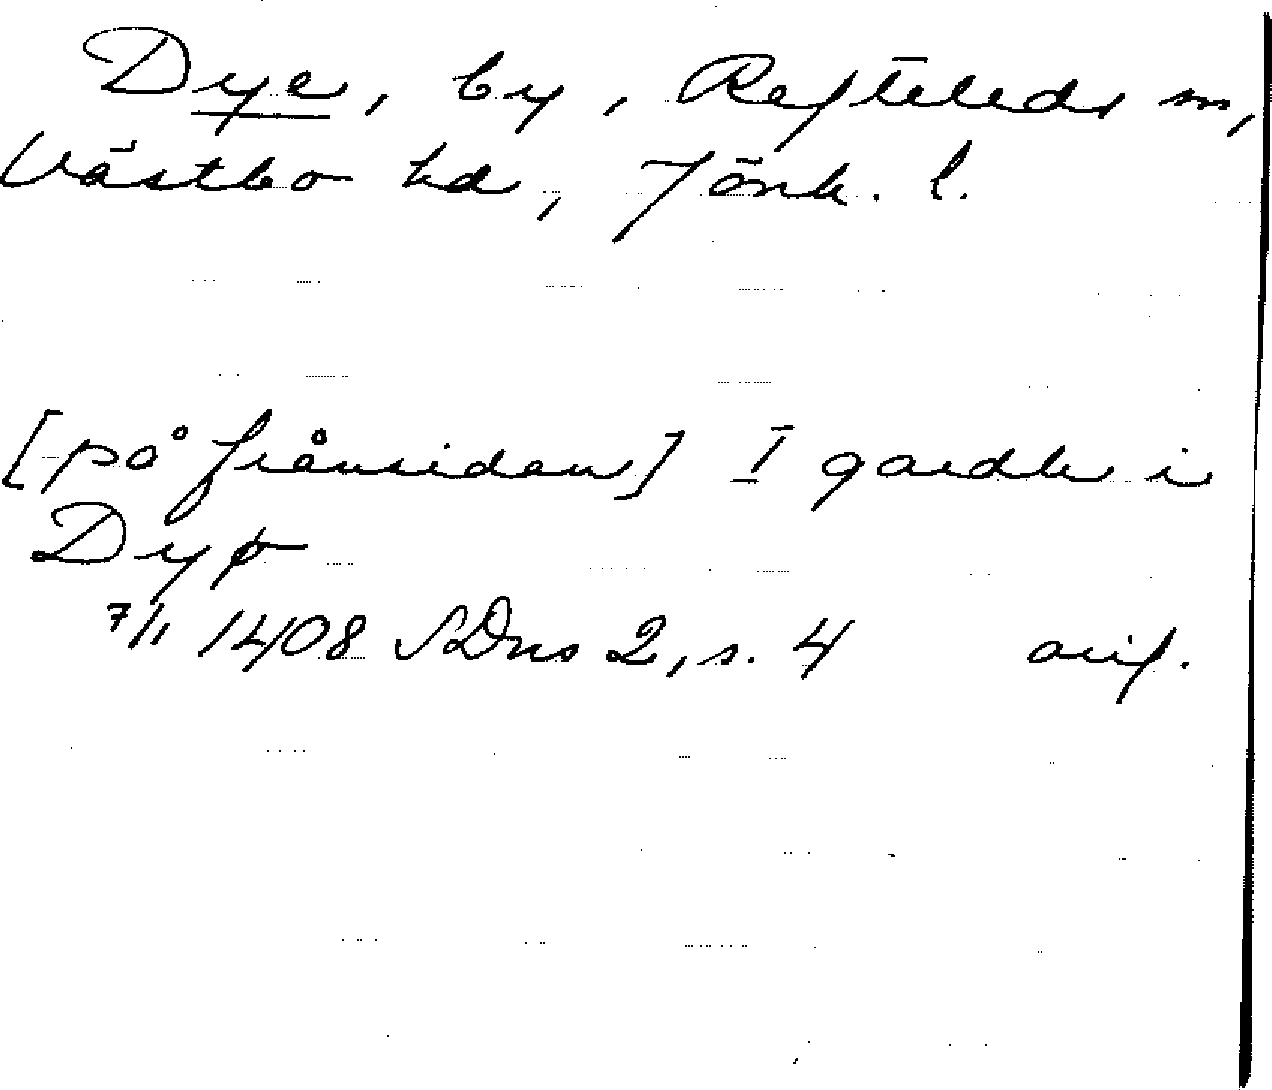 Dye, by, Reftele ds sn,
Västbo hd, Jönk. l.
[på frånsidan] I gardh i
Dyø
7/1 1408 SDns 2, s. 4 avs.